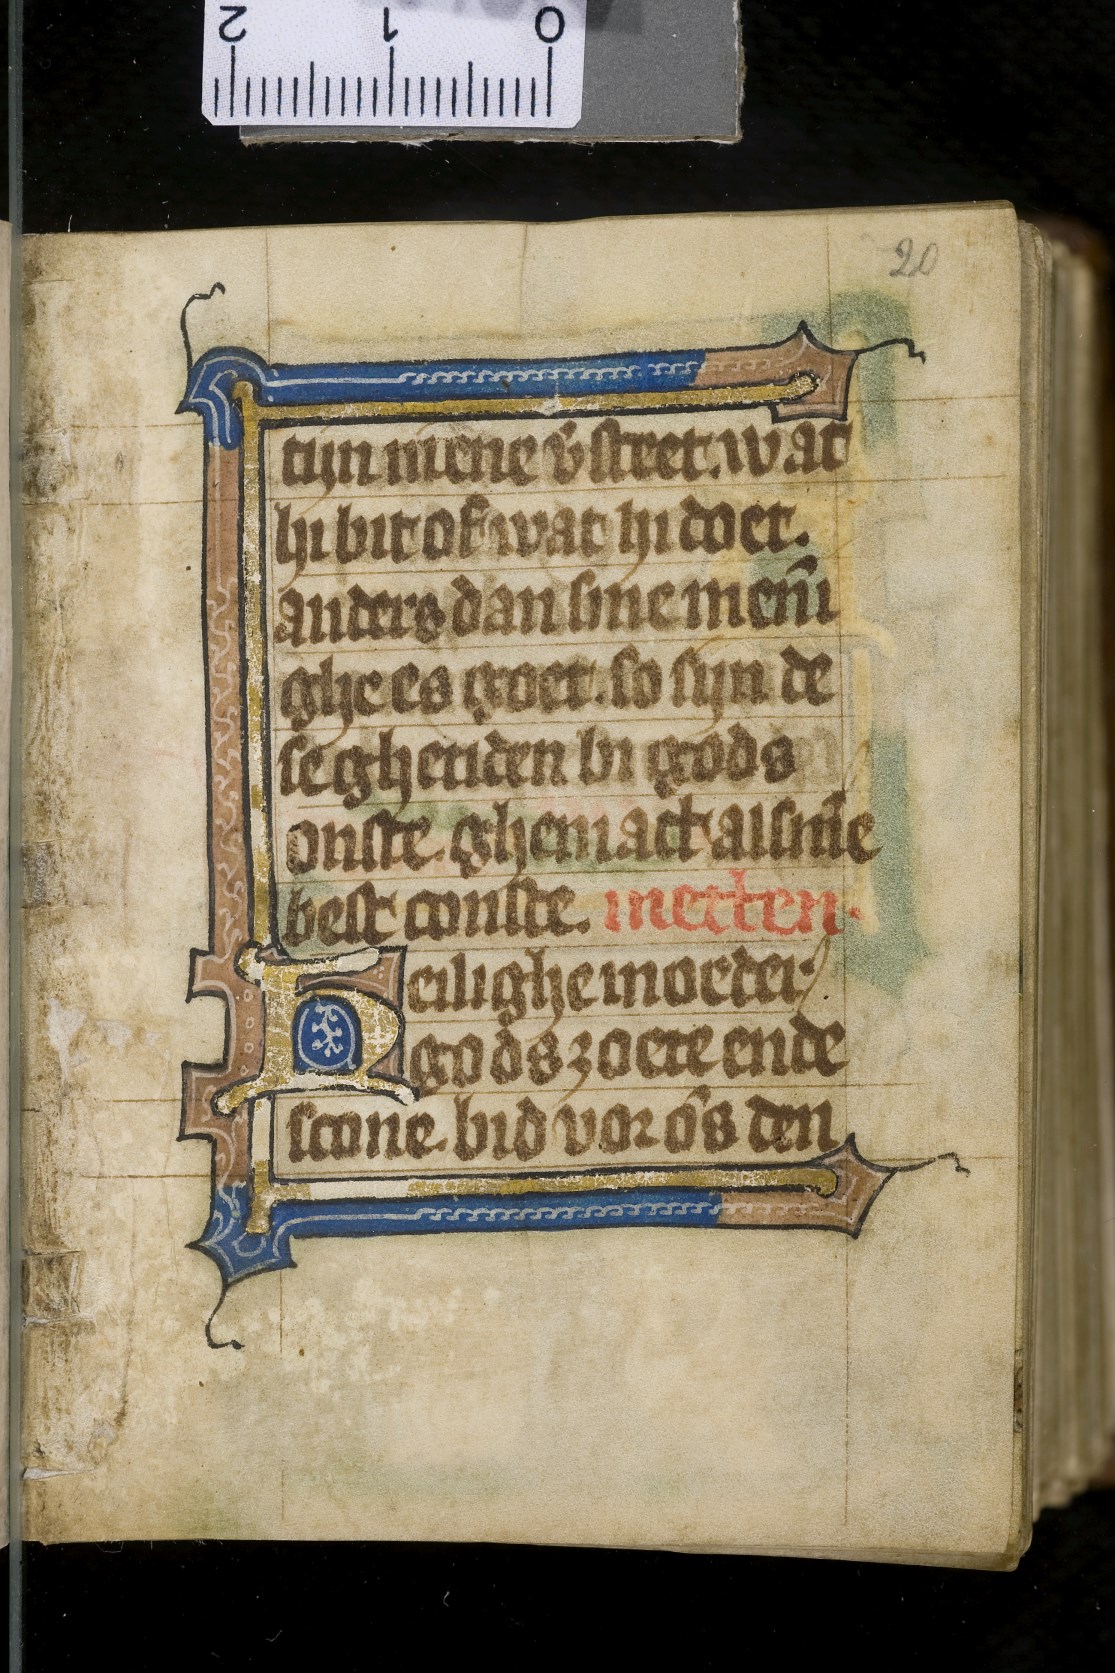 2 1 0
20
tijn niene v̄steet. wat
hi bit of wat hi doet.
anders dan sine men̄i
ghe es goet. so sijn de
se ghetiden bi gods
onste. ghemact alsmē
best conste. metten.
Heilighe moeder
gods zoete ende
scone. bid vor ōs den